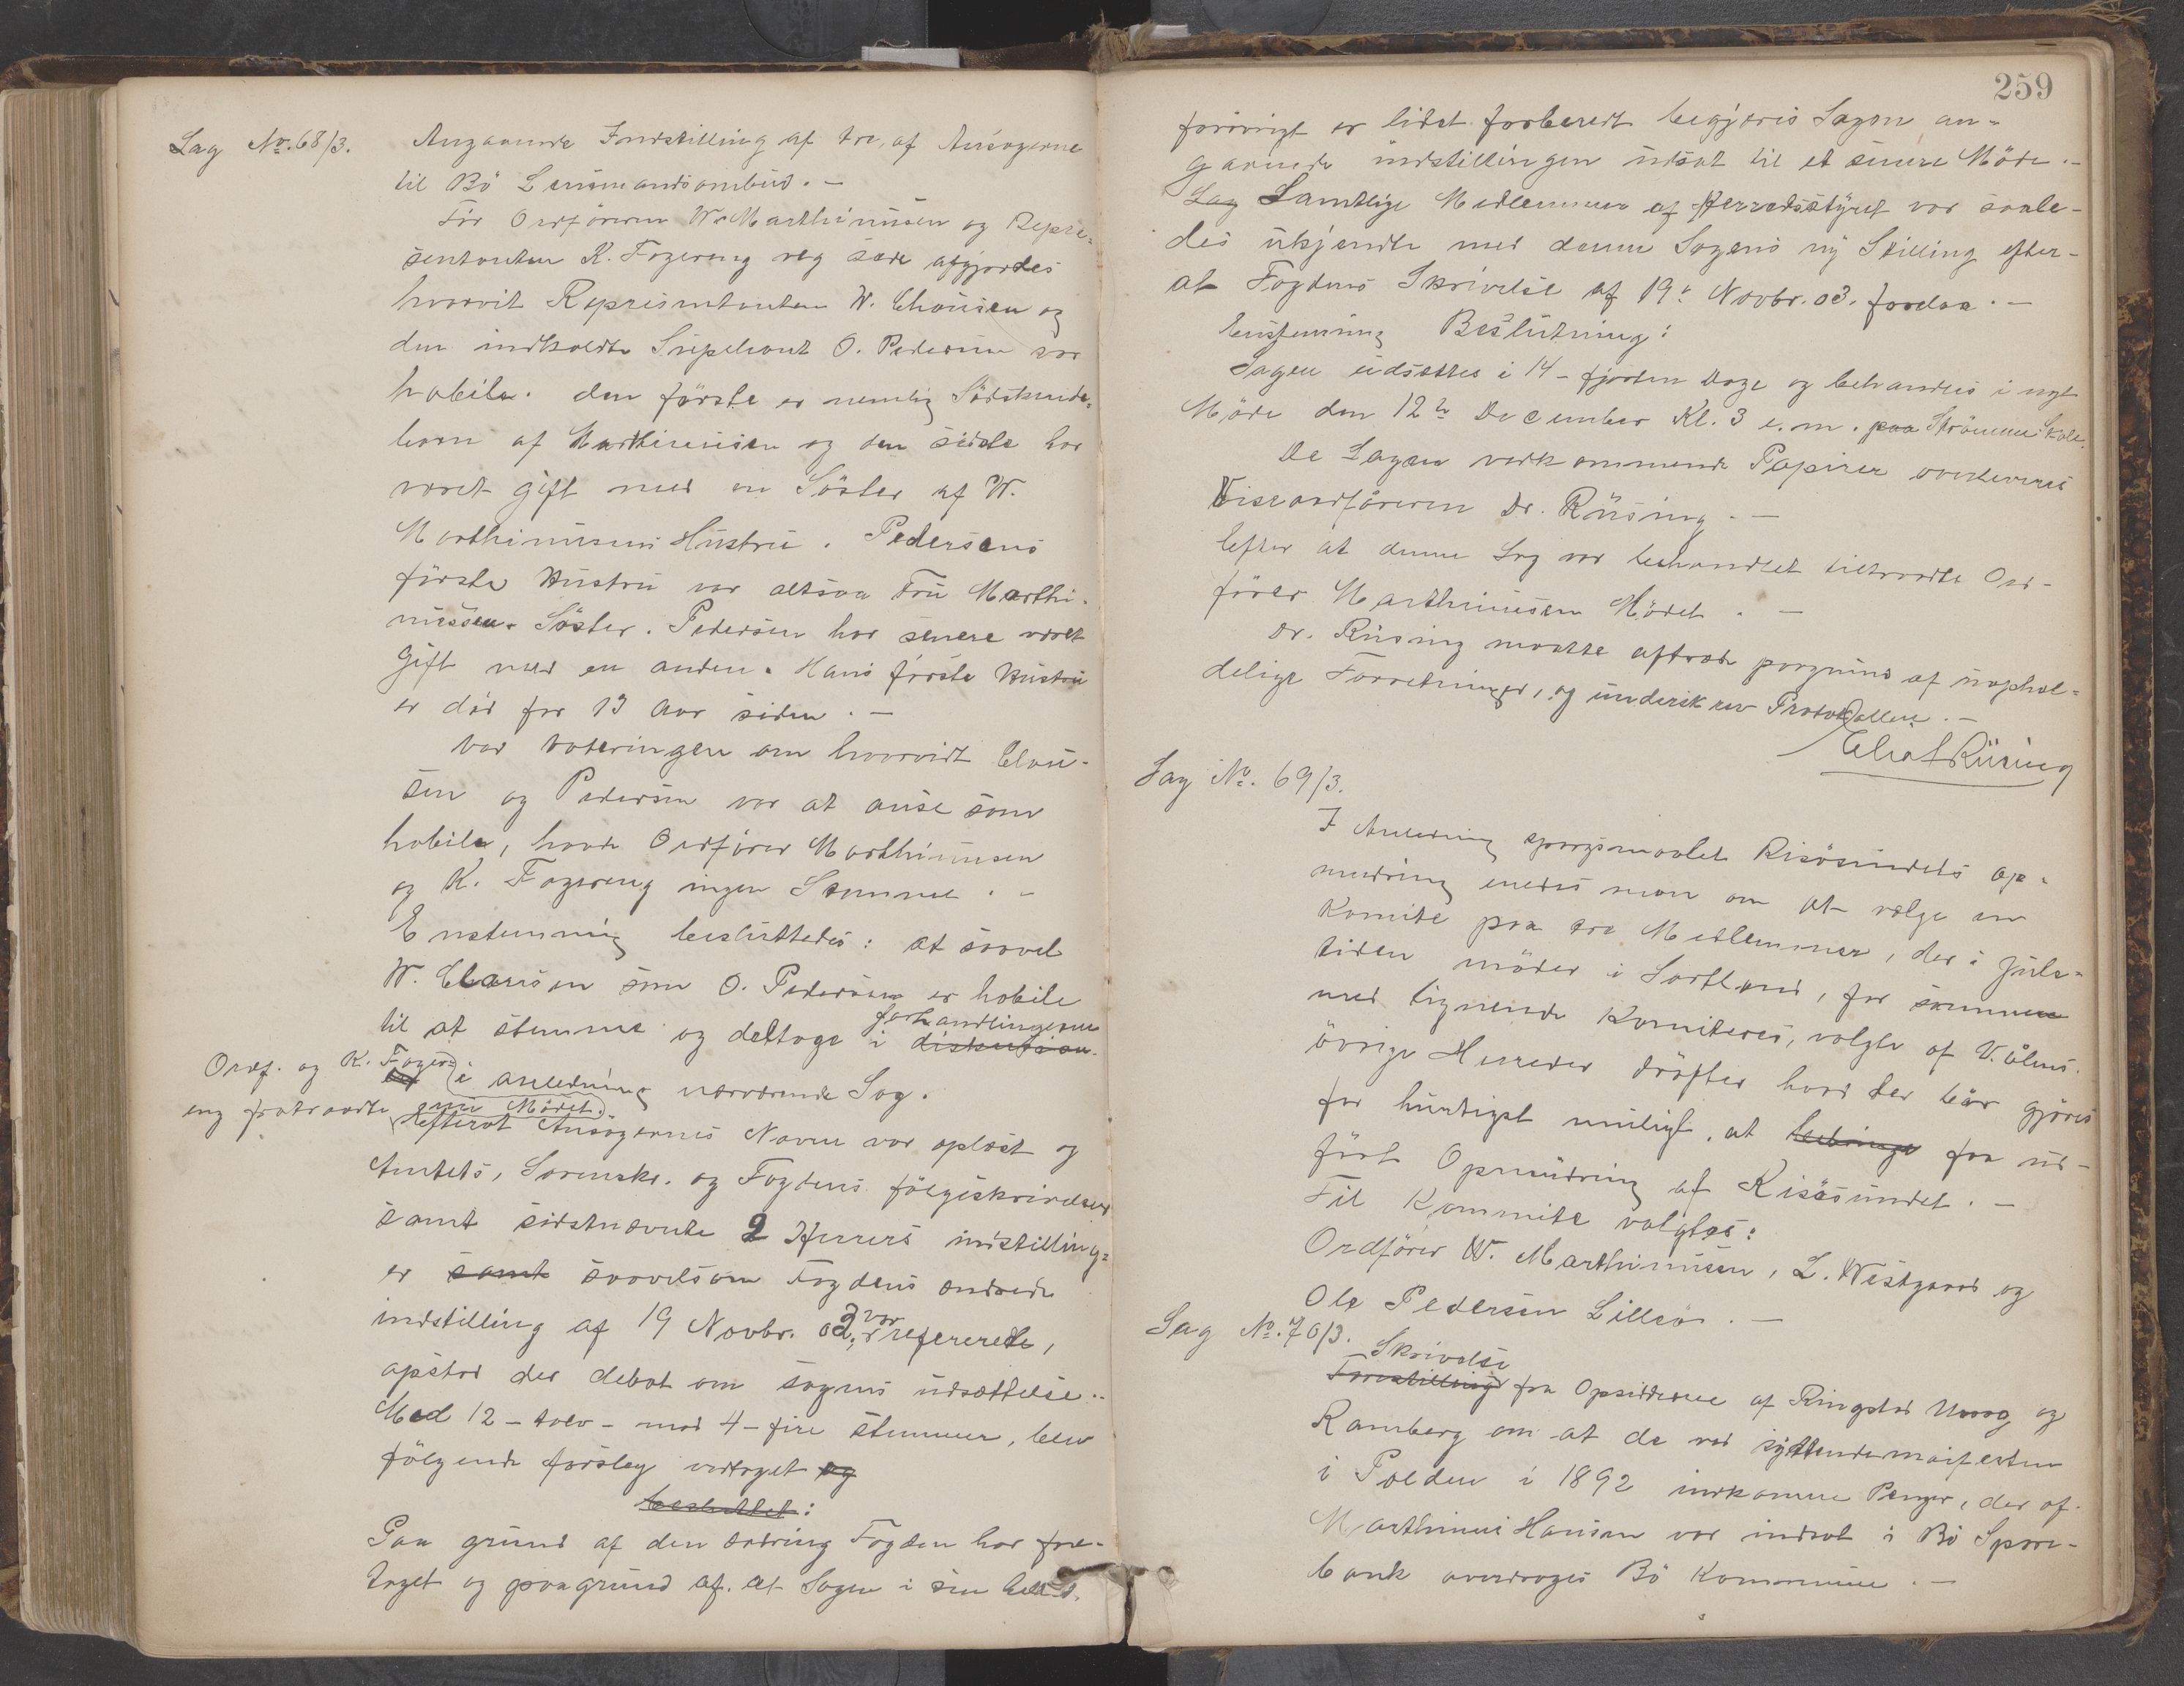 Sag No. 68/3.
Angaaende Indstilling af tre af Ansøgerne
til Bö Lensmandsombud. –
Før Ordföreren W. Marthinussen og Repre-
sentanten K. Fogereng veg sæde afgjordes
hvorvit Representanten W. Clausen og
den indkaldte Supleant O. Pedersen var
habile. den förste er nemlig Södskende-
barn af Marthinussen og den sidste har
været gift med en Söster af W.
Marthinussens Hustru. Pedersens
förste Hustru var altsaa Fru Marthi-
nussens Söster. Pedersen har senere været
gift med en anden. Hans förste Hustru
er död for 13 Aar siden. –
Ved Voteringen om hvorvidt Clau-
sen og Pedersen var at anse som
habile, havde Ordfører Marthinussen
og K. Fogereng ingen Stemme. –
Enstemmig besluttedes: at saavel
W. Clausen som O. Pedersen er habile
til at stemme og deltage i diskusion forhandlingerne
i anledning nærværende Sag.
Ordf. og K. Foger-
eng fratraadte nu Mødet.
Efterat Ansøgernes Navne var oplæst og
Amtets, Sorenskr. og Fogdens følgeskrivelser
samt sidstnævnte 2 Herrers indstilling-
er samt saavelsom Fogdens ændrede
indstilling af 19 Novbr. 03, var refererede,
opstod der debat om sagens udsættelse.
Med 12 – tolv – mod 4 – fire stemmer, blev
fölgende forslag vedtaget og
besluttet:
Paa grund af den ændring Fogden har fore-
taget og paagrund af, at Sagen i sin helhed
259
forövrigt er lidet forberedt begjæres Sagen an-
gaaende indstillingen udsat til et senere Möde. –
Sag Samtlige Medlemmer af Herredsstyret var saale-
des ukjendte med denne Sagens ny Stilling efter-
at Fogdens Skrivelse af 19de Novbr. 03. forelaa. –
Enstemmig Beslutning:
Sagen udsættes i 14 – fjorten Dage og behandles i nyt
Möde den 12te December Kl. 3 e.m. paa Strömme Skole.
De Sagen vedkommende Papirer overleveres
Viseordföreren Dr. Rüsing. –
Efter at denne Sag var behandlet tiltraadte Ord-
förer Marthinussen Mödet. –
Dr. Rüsing maatte aftræde paagrund af uophol-
delige Forretninger, og underskrev Protokollen. –
Rüsing
Sag No. 69/3.
I Anledning spørgsmaalet Risösundets op-
mudring enedes man om at vælge en
Komite paa tre Medlemmer, der i Jule-
tiden möder i Sortland, for sammen
med lignende Komiteer, valgte af V.ålens
övrige Herreder dröfter hvad der bör gjöres
for hurtigst muligt, at faa ud-
fört Opmudring af Risösundet. –
Til Kommite valgtes:
Ordförer W. Marthinussen, L. Vestgaard og
Ole Pedersen Lillesø. –
Sag No. 70/3.
Forestilling Skrivelse fra Opsidderne af Ringstad og
Ramberg om at de ved syttendemaifesten
i Polden i 1892 indkomne Penger, der af
Marthinus Hansen var indsat i Bö Spare-
bank overdrages Bö Kommune. –